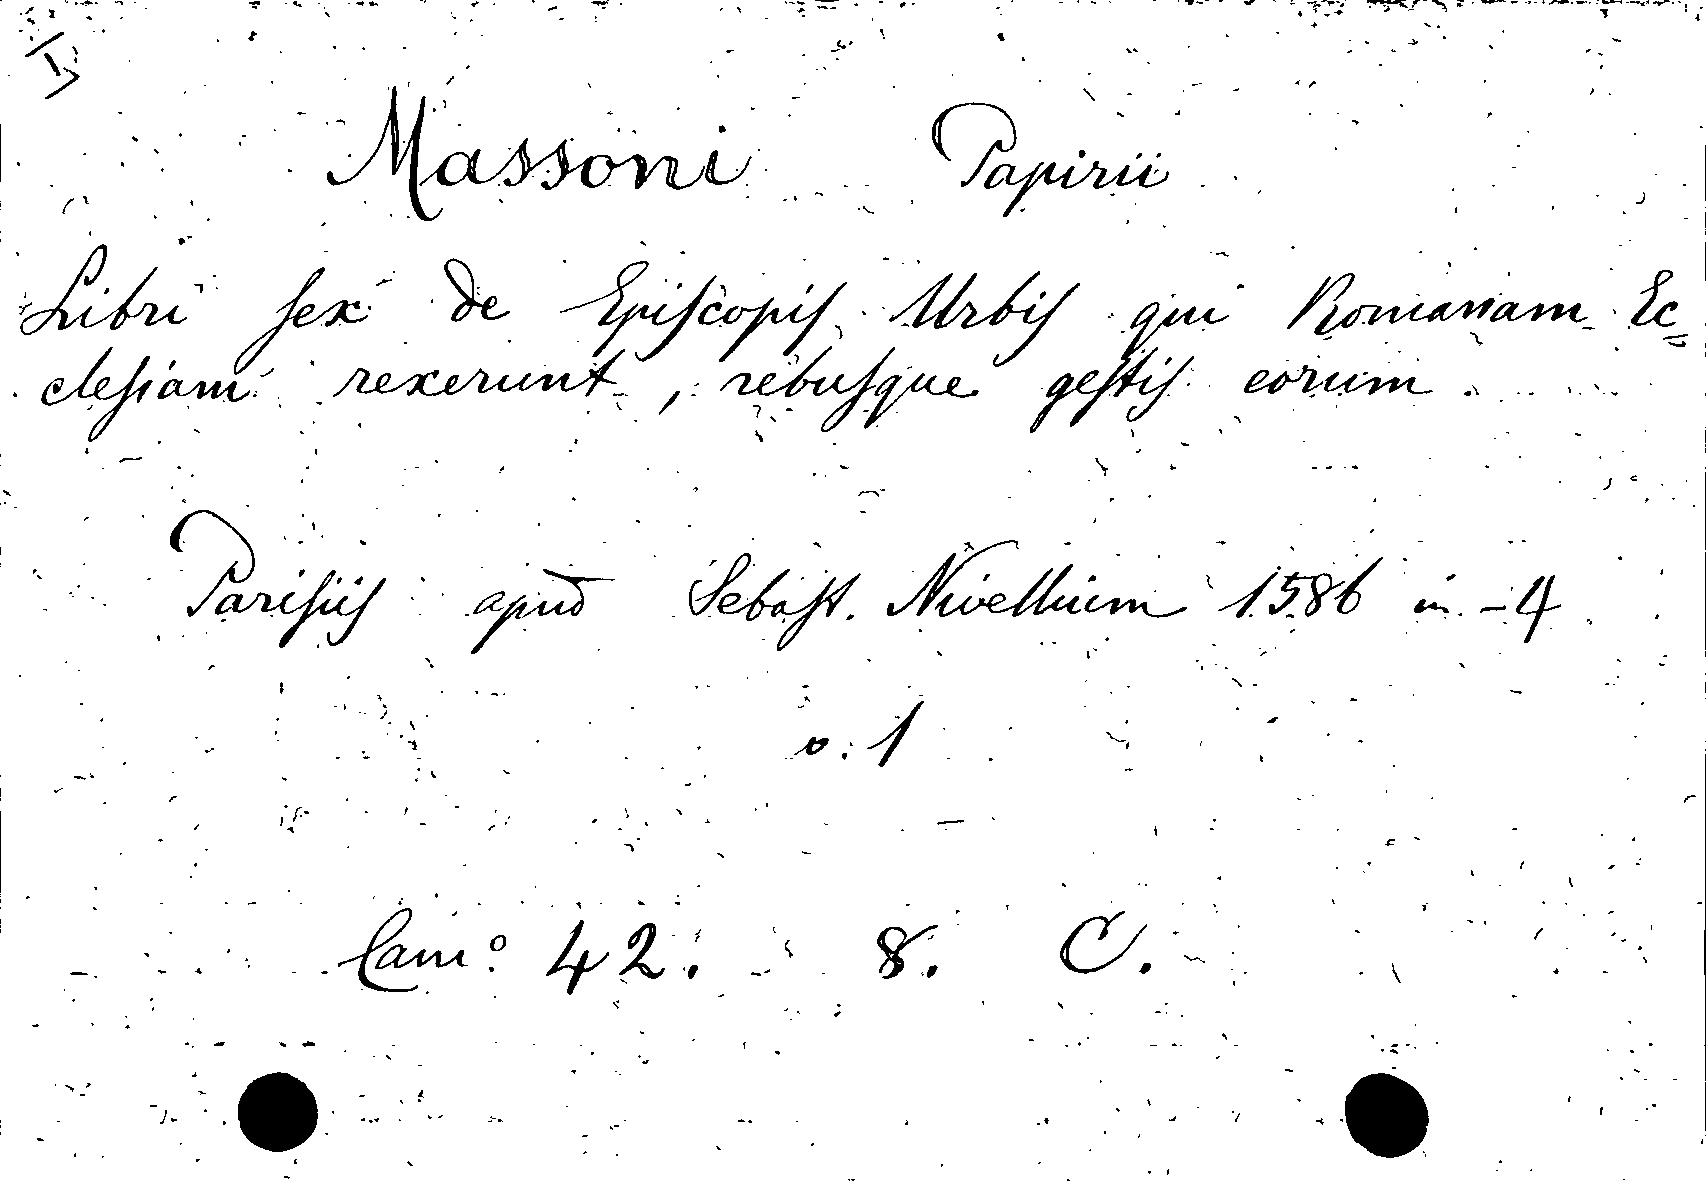 I
Massoni Papirii
Libri sex de Episcopis Urbis qui Romanam Ec=
clesiam rexerunt, rebusque gestis eorum
Parisiis apud Sebast. Nivellium 1586 in-4
v. 1
Cam.º 42. 8. C.